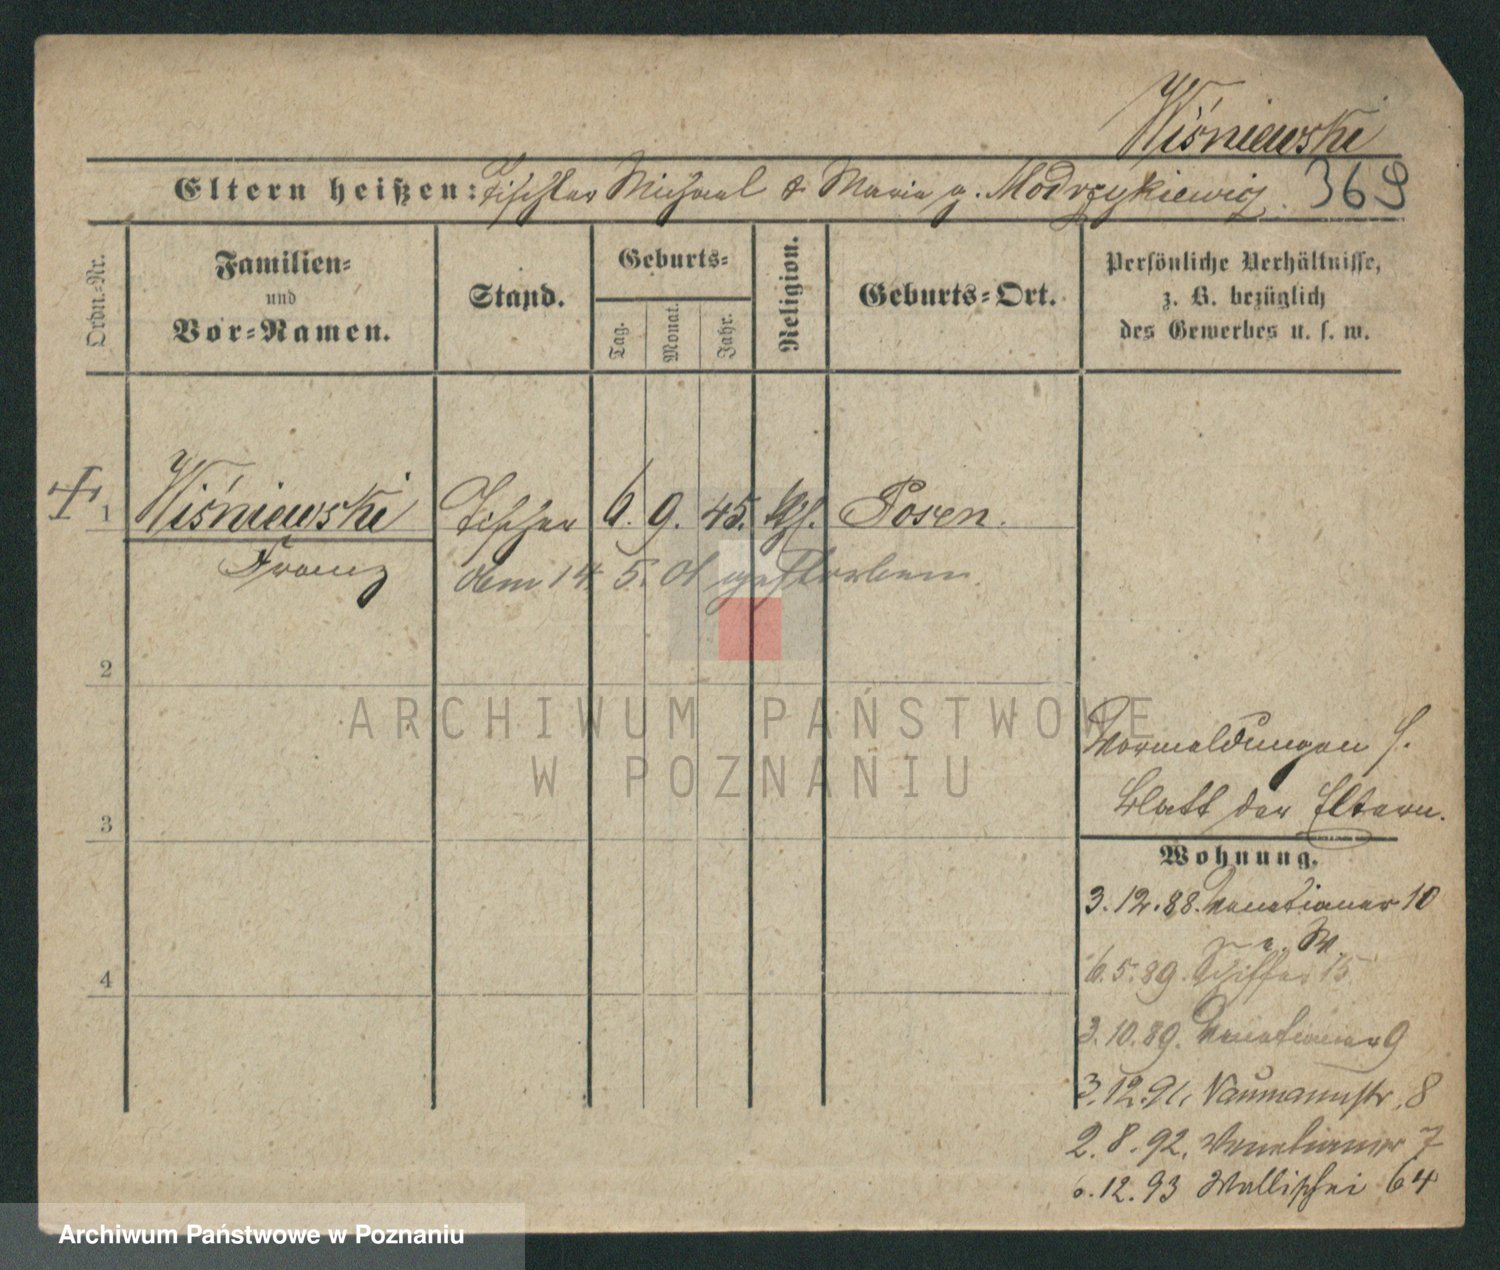 Wiśniewski
Eltern heißen: Fischer Michael & Marie g. Modrzykiewicz. 369
Ordn.-Nr.
Familien-
und
Vor-Namen.
Stand.
Geburts-
Tag.
Monat.
Jahr.
Religion.
Geburts-Ort.
Persönliche Verhältnisse,
z. B. bezüglich
des Gewerbes u. s. w.
1 Wiśniewski Fischer 6. 9. 45. kath. Posen.
Franz den 14. 5. 01 gestorben.
2
3
4
Vormeldungen s.
Blatt der Eltern.
Wohnung.
3.12.88. Venetianer 10
6.5.89. Schiffer 15
3.10.89. Venetianer 9
3.12.91, Naumannstr. 8
2.8.92. Venetianer 7
6.12.93 Wallischei 64
ARCHIWUM PAŃSTWOWE
W POZNANIU
Archiwum Państwowe w Poznaniu